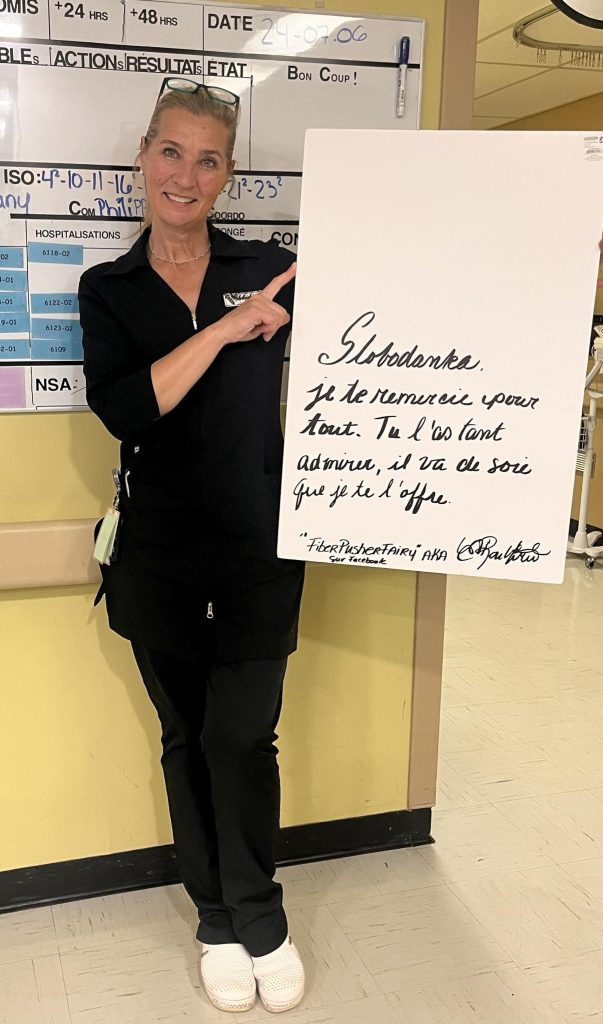 OMIS +24 HRS +48 HRS DATE 24-07-06
BLES ACTIONS RÉSULTATS ÉTAT BON COUP !
ISO: 4²-10-11-16 21²-23²
any COM Philipp COORDO
HOSPITALISATIONS ONGÉ CON
6118-02
6122-02
6123-02
6109
NSA:
Slobodanka,
je te remercie pour
tout. Tu l'as tant
admirer, il va de soie
que je te l'offre.
"FiberPusherFairy" AKA
Sur Facebook